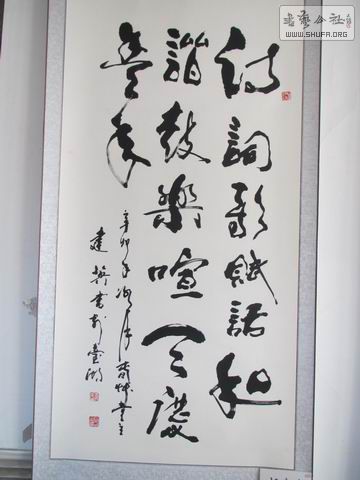 詩詞歌賦話和
諧鼓樂喧天慶
豐年
辛卯年
書於臺湖
書藝公社
WWW.SHUFA.ORG